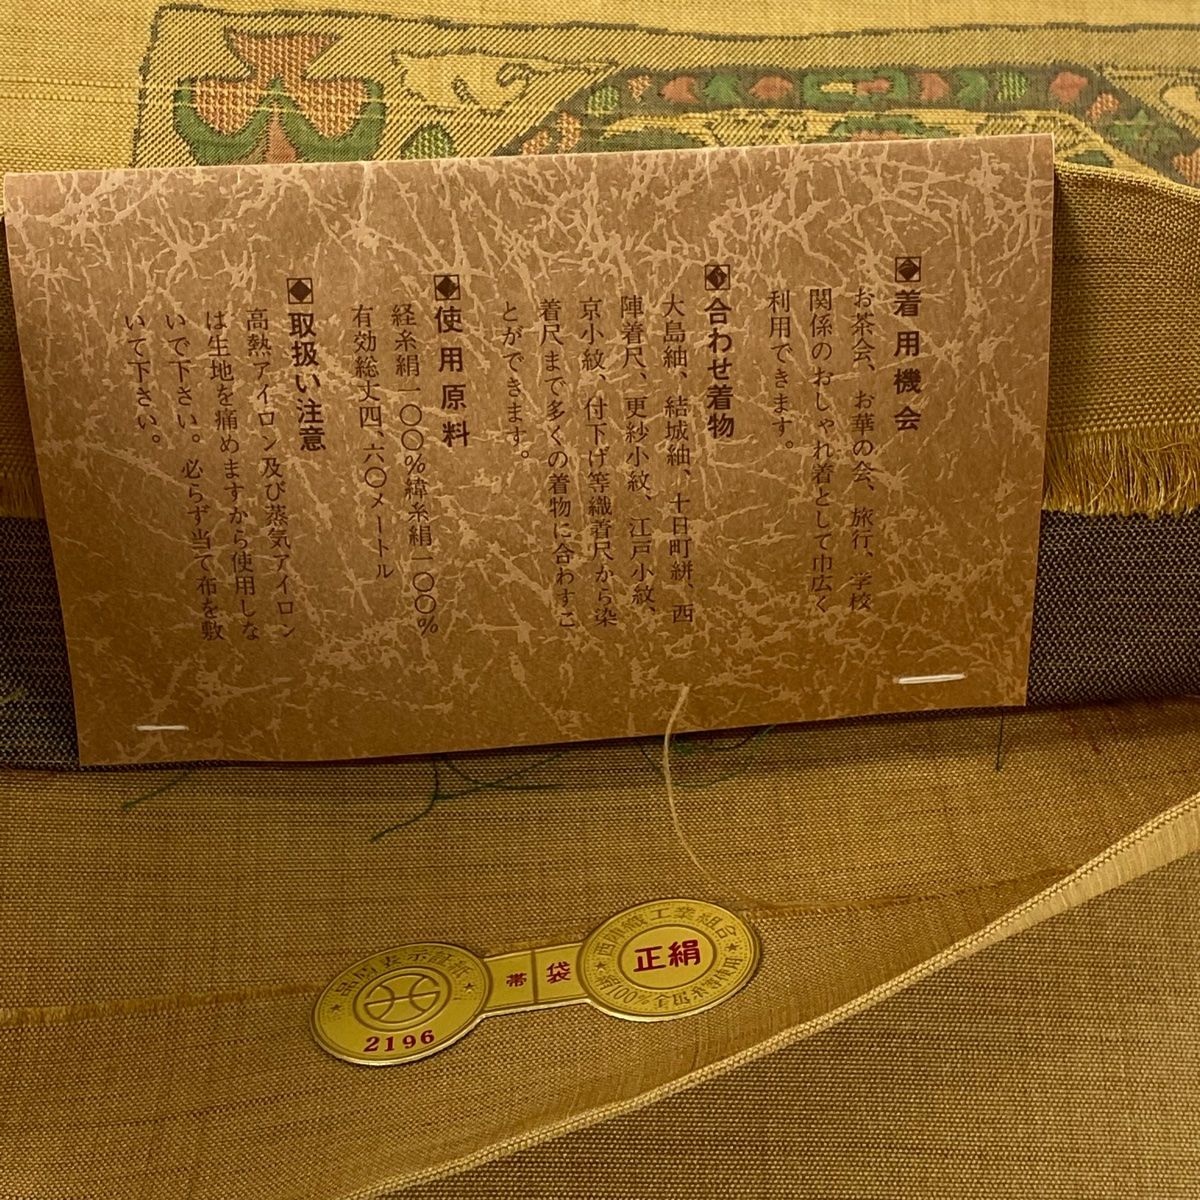 着用機会
お茶会、お華の会、旅行、学校
関係のおしゃれ着として巾広く
利用できます。
合わせ着物
大島紬、結城紬、十日町絣、西
陣着尺、更紗小紋、江戸小紋、
京小紋、付下げ等織着尺から染
着尺まで多くの着物に合わすこ
とができます。
使用原料
経糸絹一〇〇%緯糸絹一〇〇%
有効総丈四、六〇メートル
取扱い注意
高熱アイロン及び蒸気アイロン
は生地を痛めますから使用しな
いで下さい。必らず当て布を敷
いて下さい。
西陣織工業組合
正絹
絹100%
袋帯
品質表示証紙
2196